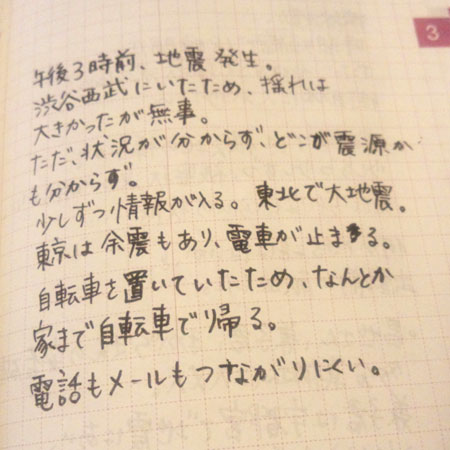 3
午後3時前、地震発生。
渋谷西武にいたため、揺れは
大きかったが無事。
ただ、状況が分からず、どこが震源か
も分からず。
少しずつ情報が入る。東北で大地震。
東京は余震もあり、電車が止まる。
自転車を置いていたため、なんとか
家まで自転車で帰る。
電話もメールもつながりにくい。